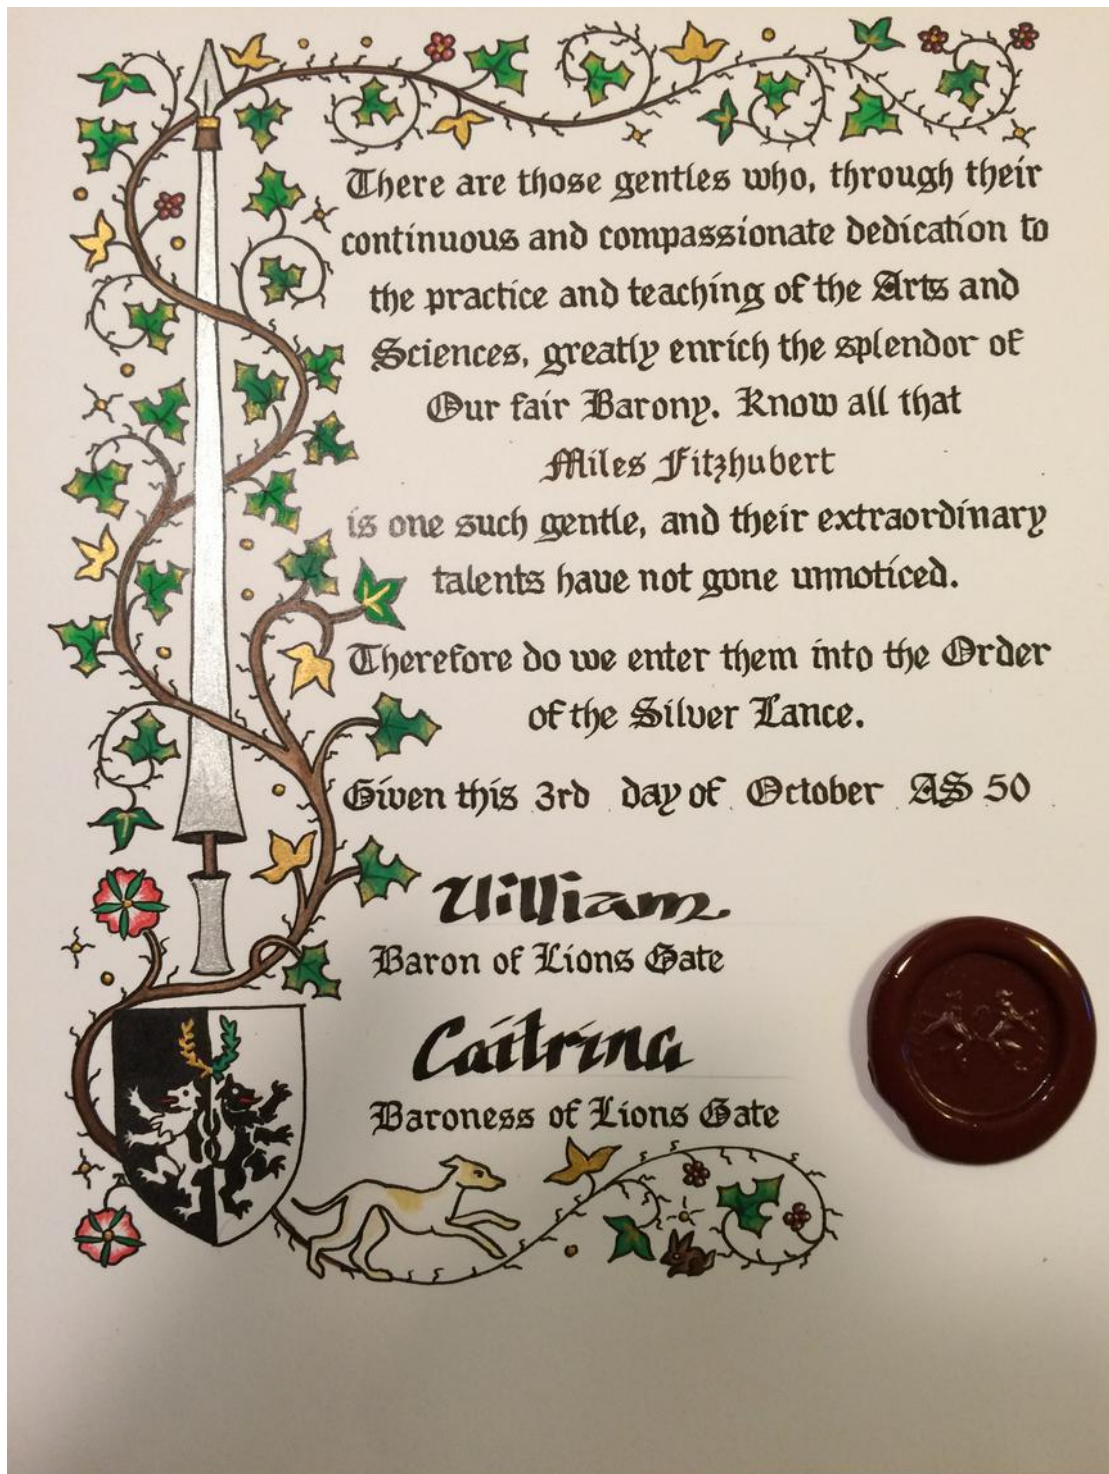 There are those gentles who, through their
continuous and compassionate dedication to
the practice and teaching of the Arts and
Sciences, greatly enrich the splendor of
Our fair Barony. Know all that
Miles Fitzhubert
is one such gentle, and their extraordinary
talents have not gone unnoticed.
Therefore do we enter them into the Order
of the Silver Lance.
Given this 3rd day of October AS 50
William
Baron of Lions Gate
Caitrina
Baroness of Lions Gate